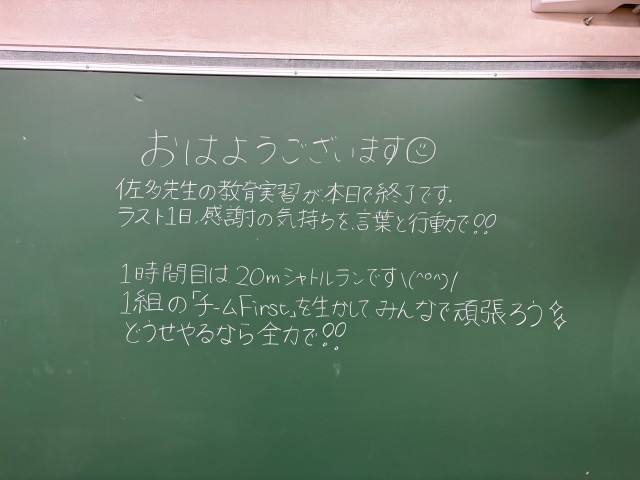 おはようございます☺
佐多先生の教育実習が、本日で終了です.
ラスト1日、感謝の気持ちを、言葉と行動で!!
1時間目は、20mシャトルランです\(^o^)/
1組の「チームFirst」を生かして みんなで頑張ろう✨
どうせやるなら 全力で!!